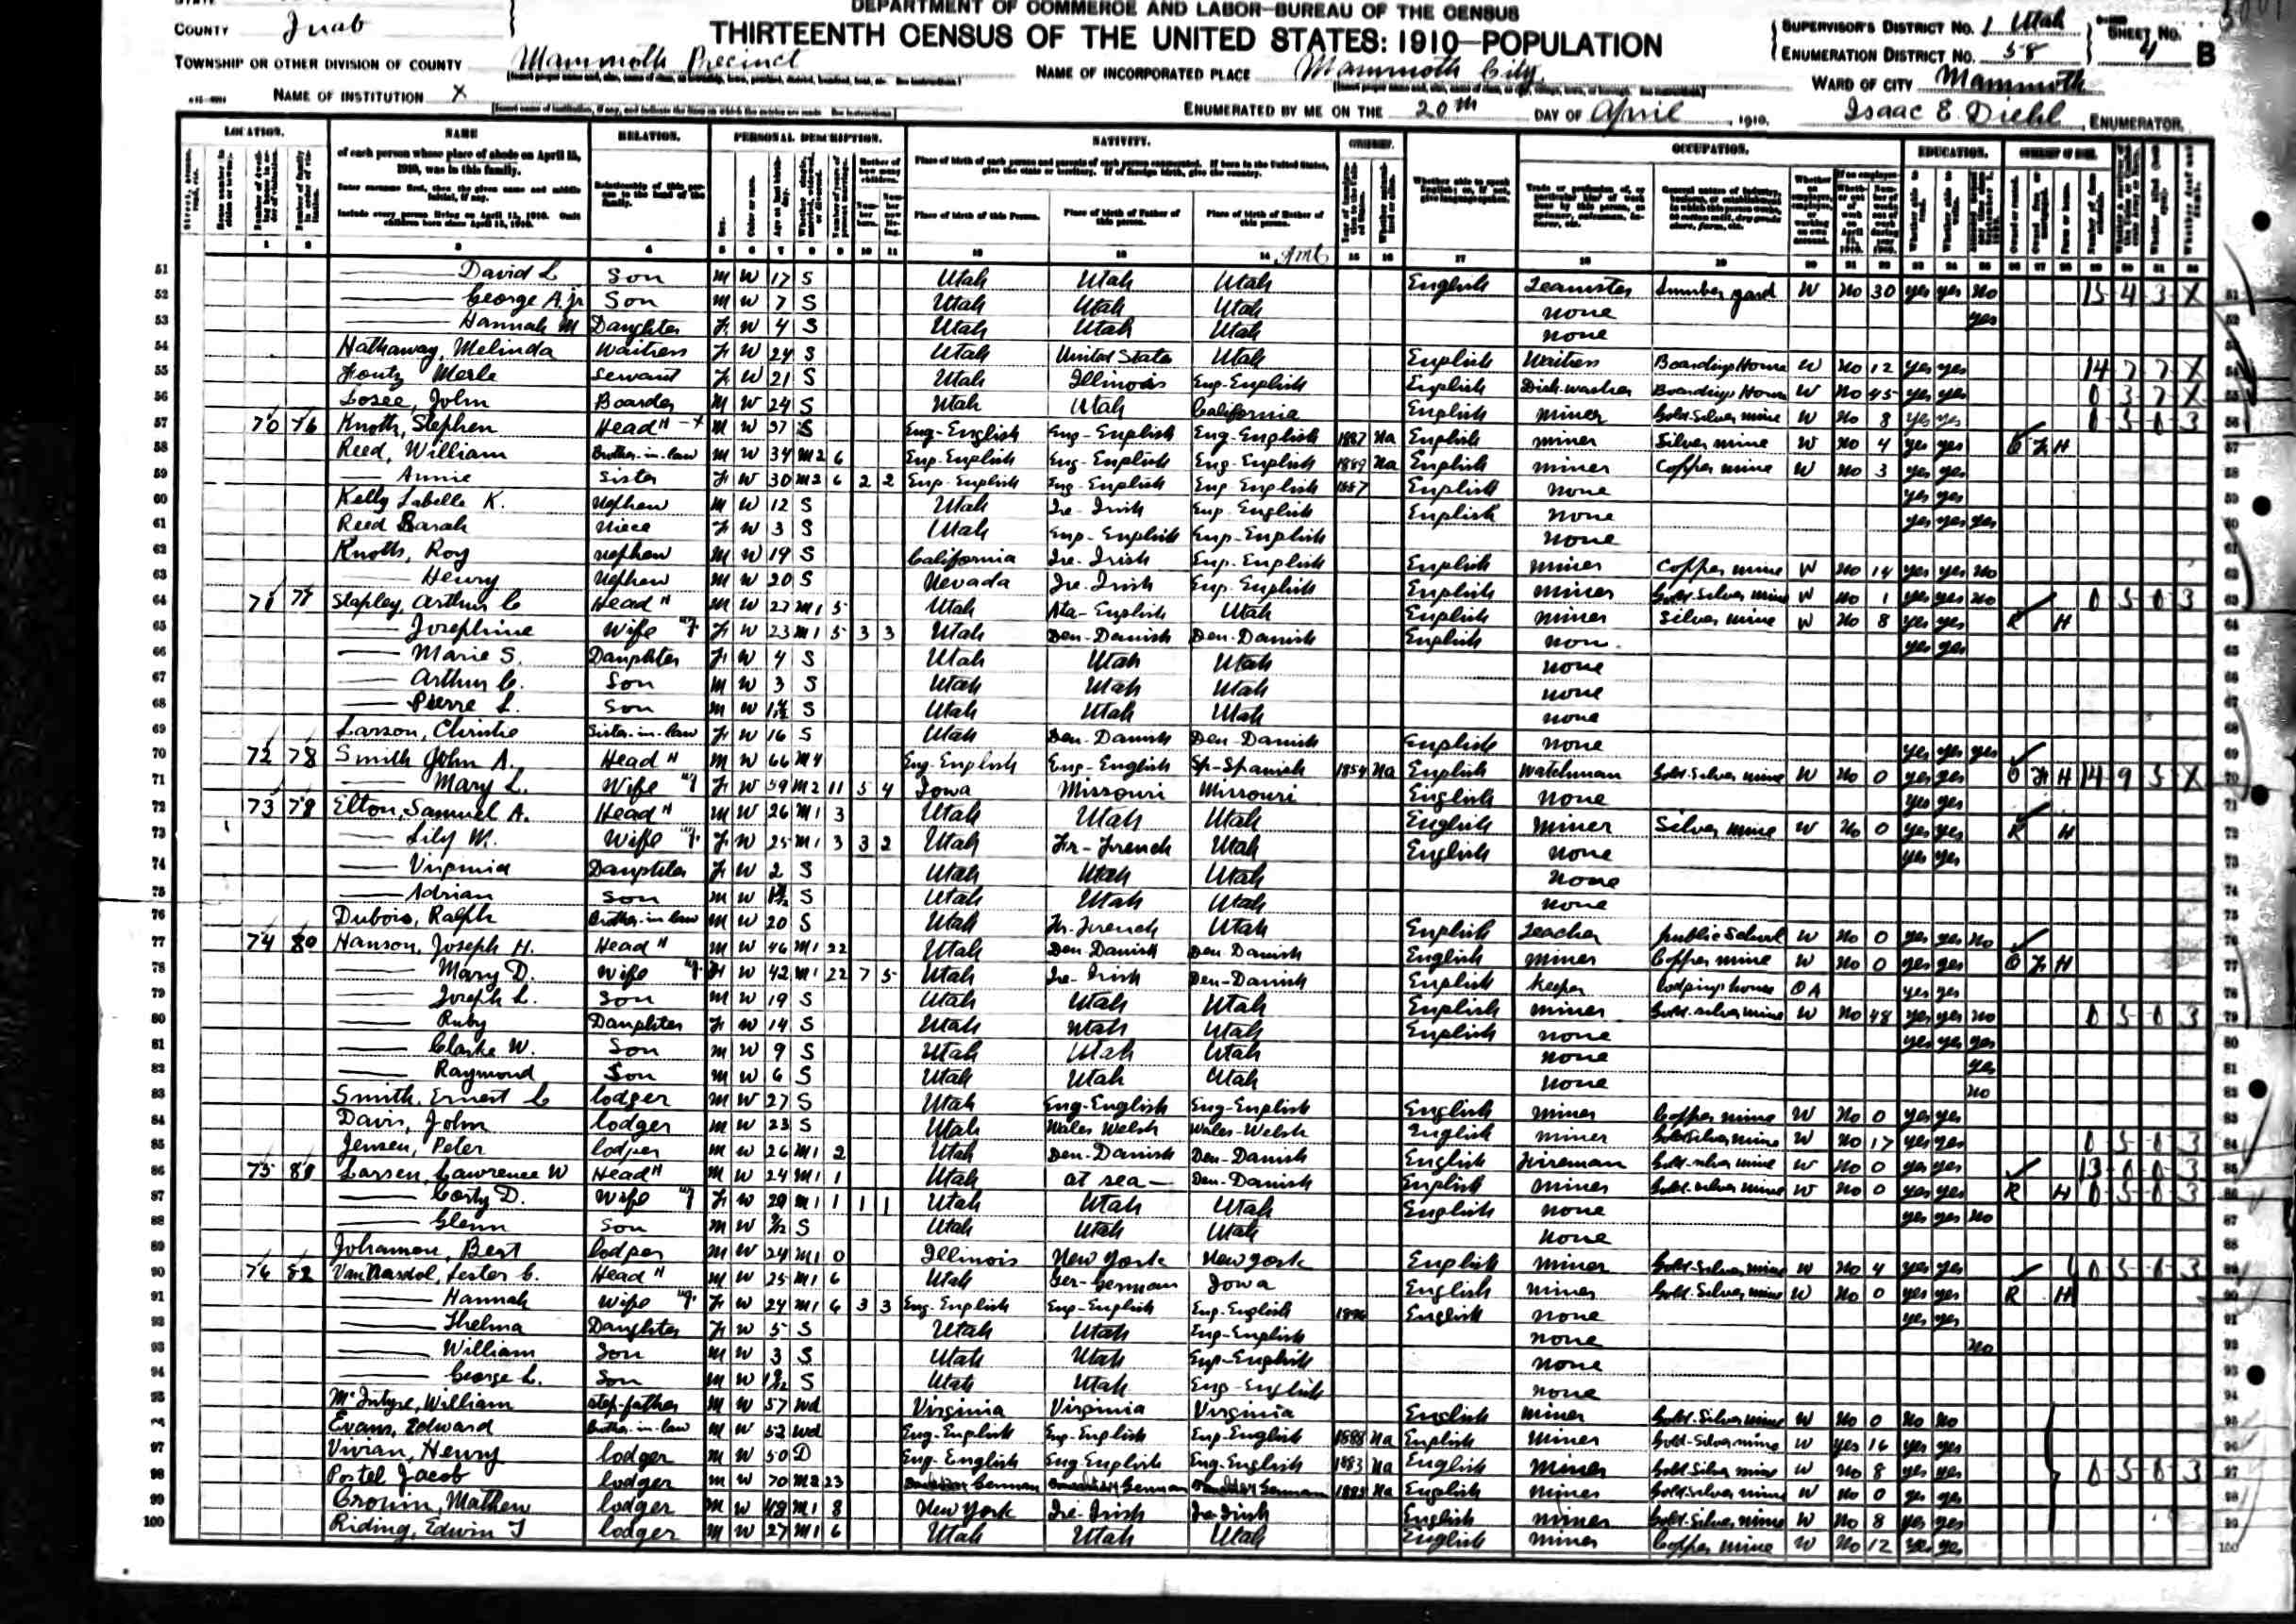 DEPARTMENT OF COMMERCE AND LABOR—BUREAU OF THE CENSUS
THIRTEENTH CENSUS OF THE UNITED STATES: 1910—POPULATION
COUNTY Juab
TOWNSHIP OR OTHER DIVISION OF COUNTY Mammoth Precinct
NAME OF INSTITUTION X
NAME OF INCORPORATED PLACE Mammoth City
ENUMERATED BY ME ON THE 20th DAY OF April, 1910.
SUPERVISOR'S DISTRICT No. 1 Utah
ENUMERATION DISTRICT No. 58
SHEET No. 4 B
WARD OF CITY Mammoth
Isaac E. Diehl, ENUMERATOR.
LOCATION. NAME RELATION. PERSONAL DESCRIPTION. NATIVITY. OCCUPATION. EDUCATION.
of each person whose place of abode on April 15, 1910, was in this family.
Enter surname first, then the given name and middle initial, if any.
Include every person living on April 15, 1910. Omit children born since April 15, 1910.
Place of birth of this Person. Place of birth of Father of this person. Place of birth of Mother of this person.
51 David L Son M W 17 S Utah Utah Utah English Teamster Lumber yard W No 30 yes yes no 15-4-3-X
52 George A jr Son M W 7 S Utah Utah Utah none yes
53 Hannah M Daughter F W 4 S Utah Utah Utah none
54 Hathaway, Melinda Waitress F W 24 S Utah United States Utah English Waitress Boardings House W No 12 yes yes 14-7-7-X
55 Foutz Merle Servant F W 21 S Utah Illinois Eng-English English Dish-washer Boardings House W No 45 yes yes 0-3-7-X
56 Losee, John Boarder M W 24 S Utah Utah California English miner Gold-Silver mine W No 8 yes yes 0-5-0-3
57 70 76 Knott, Stephen Head M W 37 S Eng-English Eng-English Eng-English 1887 Na English miner Silver mine W No 4 yes yes O F H
58 Reed, William Brother-in-law M W 34 M2 6 Eng-English Eng-English Eng-English 1889 Na English miner Copper mine W No 3 yes yes
59 Annie Sister F W 30 M2 6 2 2 Eng-English Eng-English Eng-English 1887 English none yes yes
60 Kelly Labelle K. Nephew M W 12 S Utah Ire-Irish Eng-English English none yes yes yes
61 Reed Sarah Niece F W 3 S Utah Eng-English Eng-English none
62 Knotts, Roy nephew M W 19 S California Ire-Irish Eng-English English miner Copper mine W No 14 yes yes no
63 Henry Nephew M W 20 S Nevada Ire-Irish Eng-English English miner Gold-Silver mine W No 1 yes yes no 0-5-0-3
64 71 77 Stapley, Arthur C Head M W 27 M1 5 Utah English Utah English miner Silver mine W No 8 yes yes R H
65 Josephine Wife F W 23 M1 5 3 3 Utah Den-Danish Den-Danish English non yes yes
66 Marie S. Daughter F W 4 S Utah Utah Utah none
67 Arthur C. Son M W 3 S Utah Utah Utah none
68 Pierre L. Son M W S Utah Utah Utah none
69 Larson, Christie Sister-in-law F W 16 S Utah Den-Danish Den-Danish English none yes yes yes
70 72 78 Smith John A. Head M W 66 M4 Eng-English Eng-English Sp-Spanish 1854 Na English Watchman Gold-Silver mine W No 0 yes yes O F H 14-9-5-X
71 Mary L. Wife F W 59 M2 11 5 4 Iowa Missouri Missouri English none yes yes
72 73 79 Elton, Samuel A. Head M W 26 M1 3 Utah Utah Utah English Miner Silver mine W No 0 yes yes R H
73 Lily M. Wife F W 25 M1 3 3 2 Utah Fr-French Utah English none yes yes
74 Virginia Daughter F W 2 S Utah Utah Utah none
75 Adrian Son M W S Utah Utah Utah none
76 Dubois, Ralph Brother-in-law M W 20 S Utah Fr-French Utah English Teacher public School W No 0 yes yes no
77 74 80 Hanson, Joseph H. Head M W 46 M1 22 Utah Den-Danish Den-Danish English miner Copper mine W No 0 yes yes O F H
78 Mary D. Wife F W 42 M1 22 7 5 Utah Ire-Irish Den-Danish English Keeper lodgings house OA yes yes
79 Joseph L. Son M W 19 S Utah Utah Utah English miner Gold-silver mine W No 48 yes yes no 0-5-0-3
80 Ruby Daughter F W 14 S Utah Utah Utah English none yes yes yes
81 Clarke W. Son M W 9 S Utah Utah Utah none yes
82 Raymond Son M W 6 S Utah Utah Utah none no
83 Smith, Ernest C lodger M W 27 S Utah Eng-English Eng-English English miner Copper mine W No 0 yes yes
84 Davis, John lodger M W 23 S Utah Wales Welsh Wales-Welsh English miner Gold-Silver mine W No 17 yes yes 0-5-0-3
85 Jensen, Peter lodger M W 26 M1 2 Utah Den-Danish Den-Danish English Fireman Gold-silver mine W No 0 yes yes 13-0-0-3
86 75 81 Larsen, Lawrence W Head M W 24 M1 1 Utah at sea Den-Danish English miner Gold-silver mine W No 0 yes yes R H 0-5-0-3
87 D. Wife F W M1 1 1 1 Utah Utah Utah English none yes yes no
88 Glenn Son M W S Utah Utah Utah none
89 Bert lodger M W 24 M1 0 Illinois New York New York English miner Gold-Silver mine W No 4 yes yes 0-5-0-3
90 76 82 Lester C. Head M W 25 M1 6 Utah Ger-German Iowa English miner Gold-Silver mine W No 0 yes yes R H
91 Hannah Wife F W 24 M1 6 3 3 Eng-English Eng-English Eng-English English none yes yes
92 Thelma Daughter F W 5 S Utah Utah Eng-English none no
93 William Son M W 3 S Utah Utah Eng-English none
94 George L. Son M W S Utah Utah Eng-English none
95 McIntyre, William Step-father M W 57 Wd Virginia Virginia Virginia English miner Gold-Silver mine W No 0 No No
96 Evans, Edward Brother-in-law M W 52 Wd Eng-English Eng-English Eng-English 1888 Na English Miner Gold-Silver mine W yes 16 yes yes
97 Vivian, Henry lodger M W 50 D Eng-English Eng-English Eng-English 1883 Na English Miner Gold-Silver mine W No 8 yes yes 0-5-0-3
98 Postel Jacob lodger M W 70 M2 23 German German German 1885 Na English miner Gold-Silver mine W No 0 yes yes
99 Cronin, Mathew lodger M W 48 M1 8 New York Ire-Irish Ire-Irish English miner Gold-Silver mine W No 8 yes yes
100 Riding, Edwin T lodger M W 27 M1 6 Utah Utah Utah English miner Copper mine W No 12 yes yes